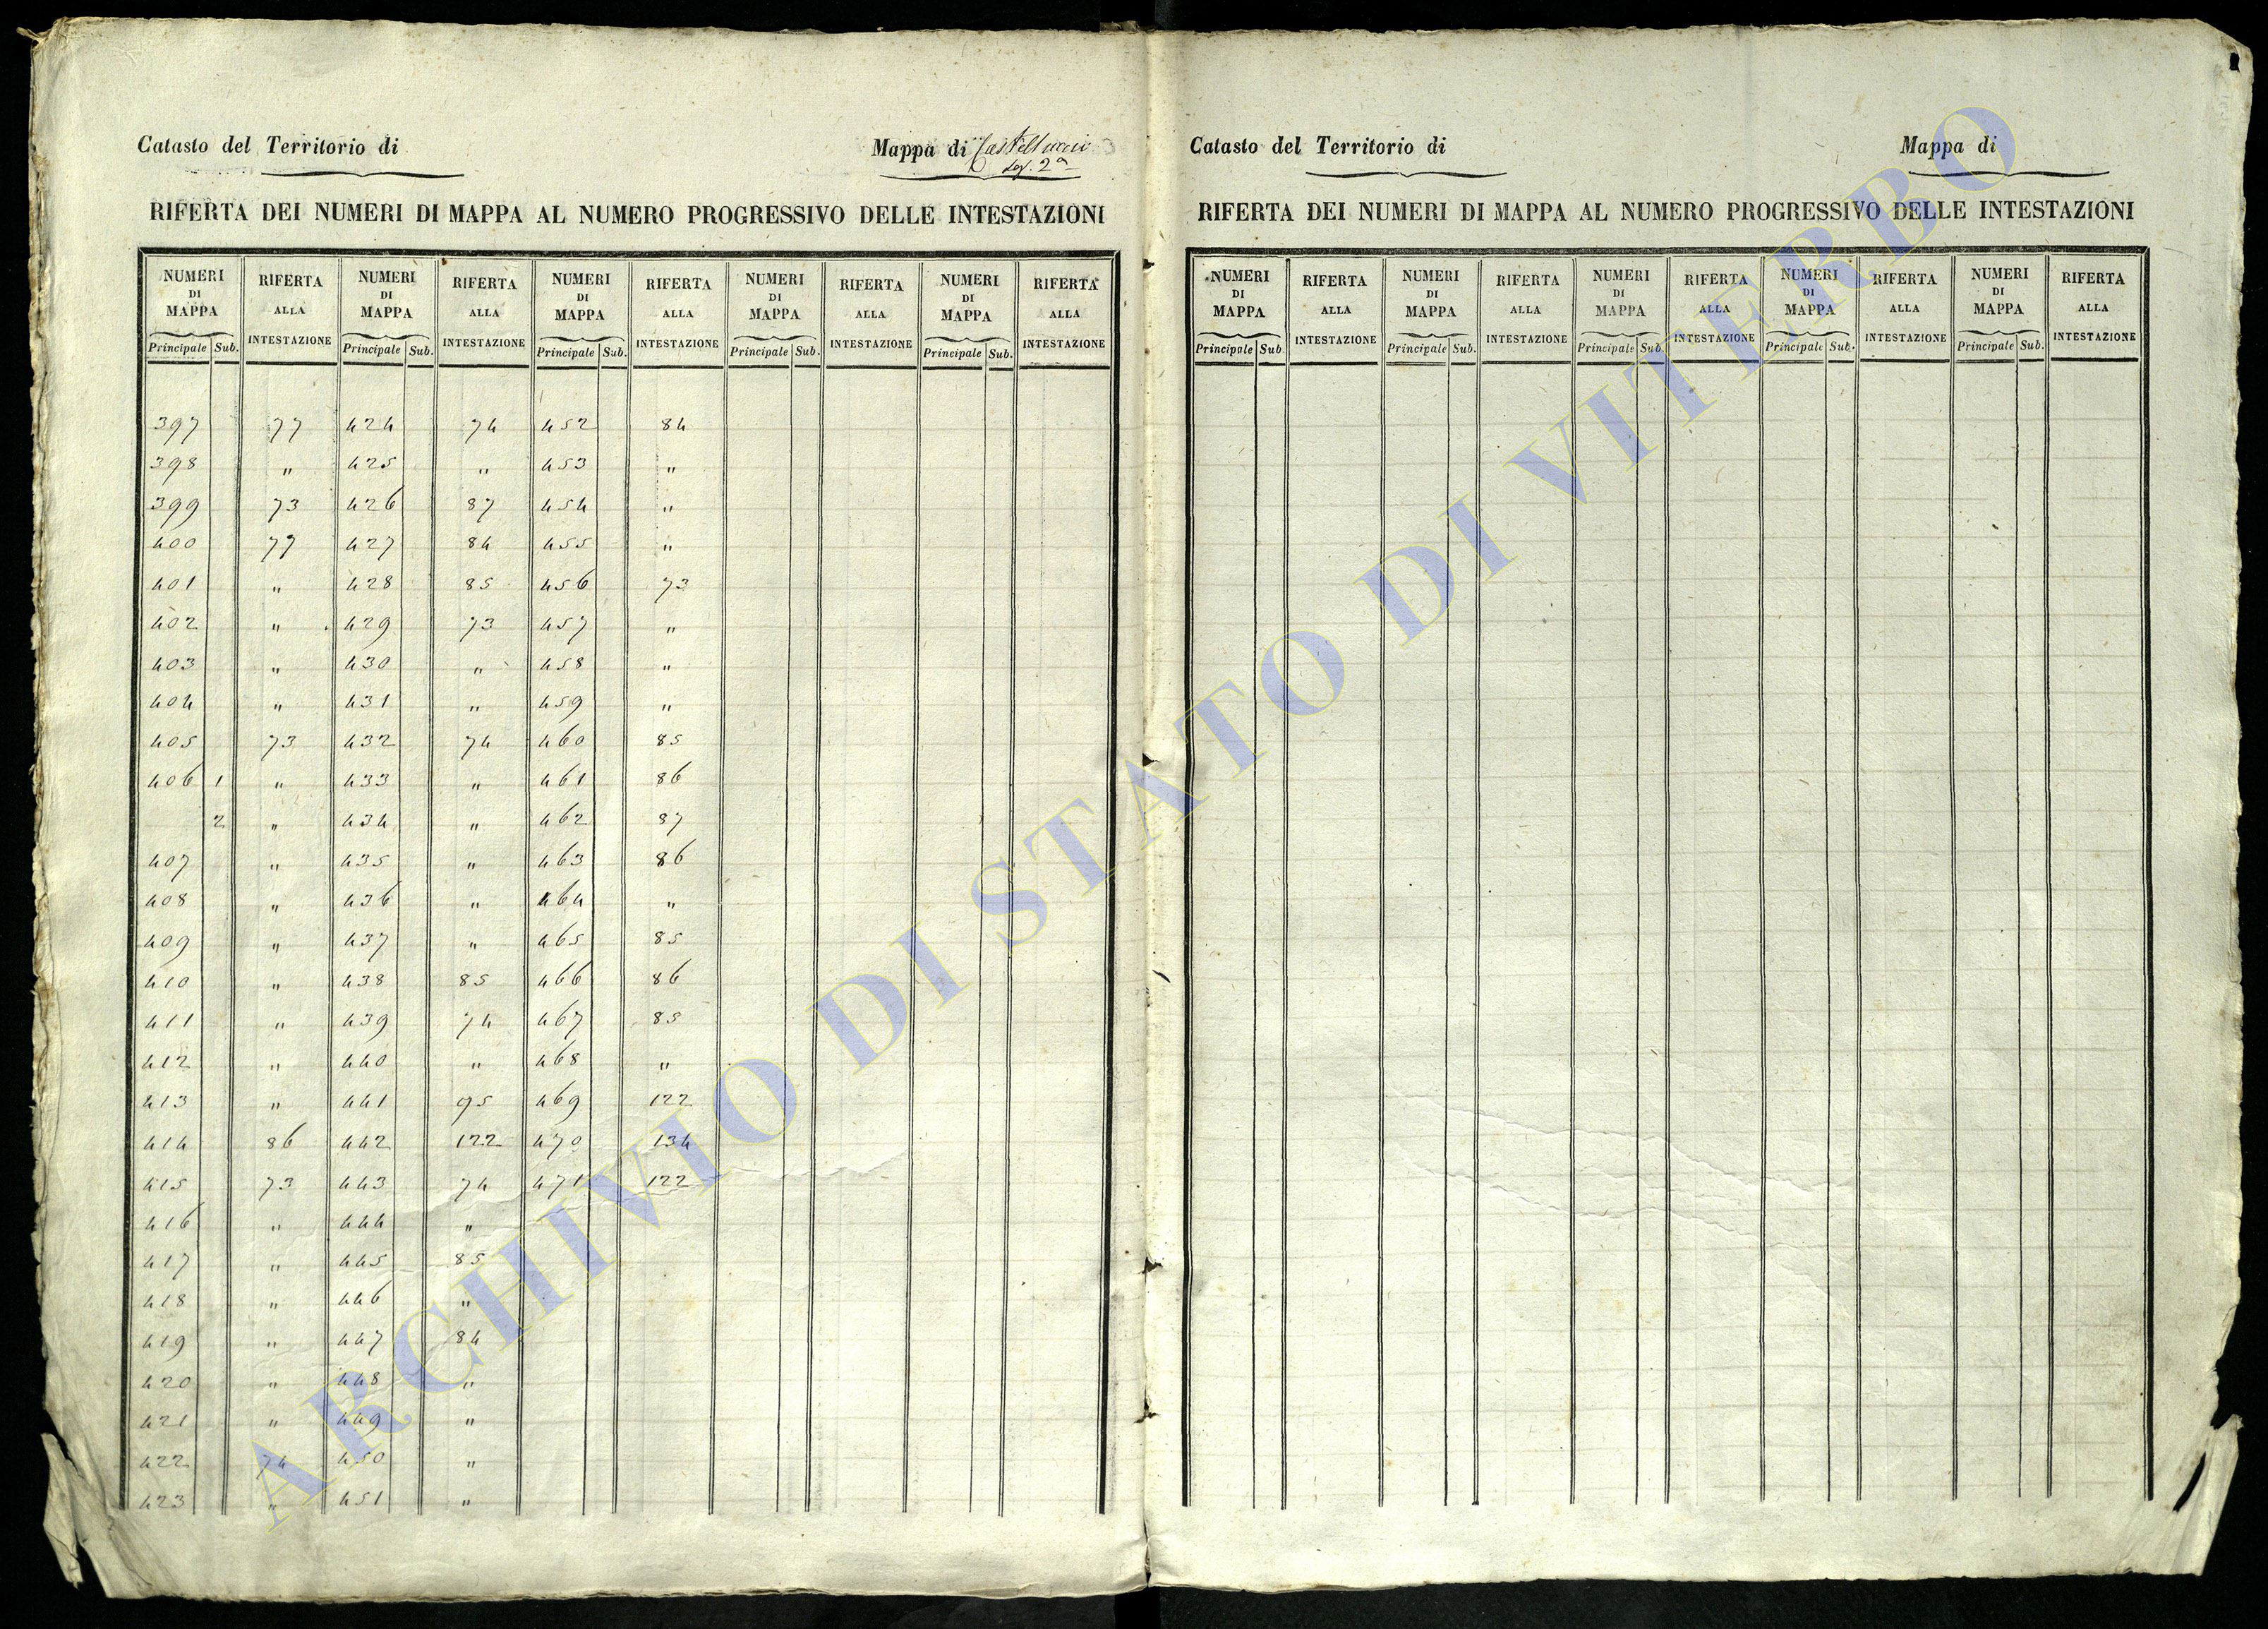 Catasto del Territorio di
Mappa di
Sez. 2ª
RIFERTA DEI NUMERI DI MAPPA AL NUMERO PROGRESSIVO DELLE INTESTAZIONI
NUMERI DI MAPPA RIFERTA ALLA INTESTAZIONE NUMERI DI MAPPA RIFERTA ALLA INTESTAZIONE NUMERI DI MAPPA RIFERTA ALLA INTESTAZIONE NUMERI DI MAPPA RIFERTA ALLA INTESTAZIONE NUMERI DI MAPPA RIFERTA ALLA INTESTAZIONE
Principale Sub. Principale Sub. Principale Sub. Principale Sub. Principale Sub.
397 77 424 74 452 84
398 " 425 " 453 "
399 73 426 87 454 "
400 77 427 84 455 "
401 " 428 85 456 73
402 " 429 73 457 "
403 " 430 " 458 "
404 " 431 " 459 "
405 73 432 74 460 85
406 1 " 433 " 461 86
2 " 434 " 462 87
407 " 435 " 463 86
408 " 436 " 464 "
409 " 437 " 465 85
410 " 438 85 466 86
411 " 439 74 467 85
412 " 440 " 468 "
413 " 441 95 469 122
414 86 442 122 470 134
415 73 443 74 471 122
416 " 444 "
417 " 445 85
418 " 446 "
419 " 447 84
420 " 448 "
421 " 449 "
422 74 450 "
423 " 451 "
Catasto del Territorio di
Mappa di
RIFERTA DEI NUMERI DI MAPPA AL NUMERO PROGRESSIVO DELLE INTESTAZIONI
NUMERI DI MAPPA RIFERTA ALLA INTESTAZIONE NUMERI DI MAPPA RIFERTA ALLA INTESTAZIONE NUMERI DI MAPPA RIFERTA ALLA INTESTAZIONE NUMERI DI MAPPA RIFERTA ALLA INTESTAZIONE NUMERI DI MAPPA RIFERTA ALLA INTESTAZIONE
Principale Sub. Principale Sub. Principale Sub. Principale Sub. Principale Sub.
ARCHIVIO DI STATO DI VITERBO